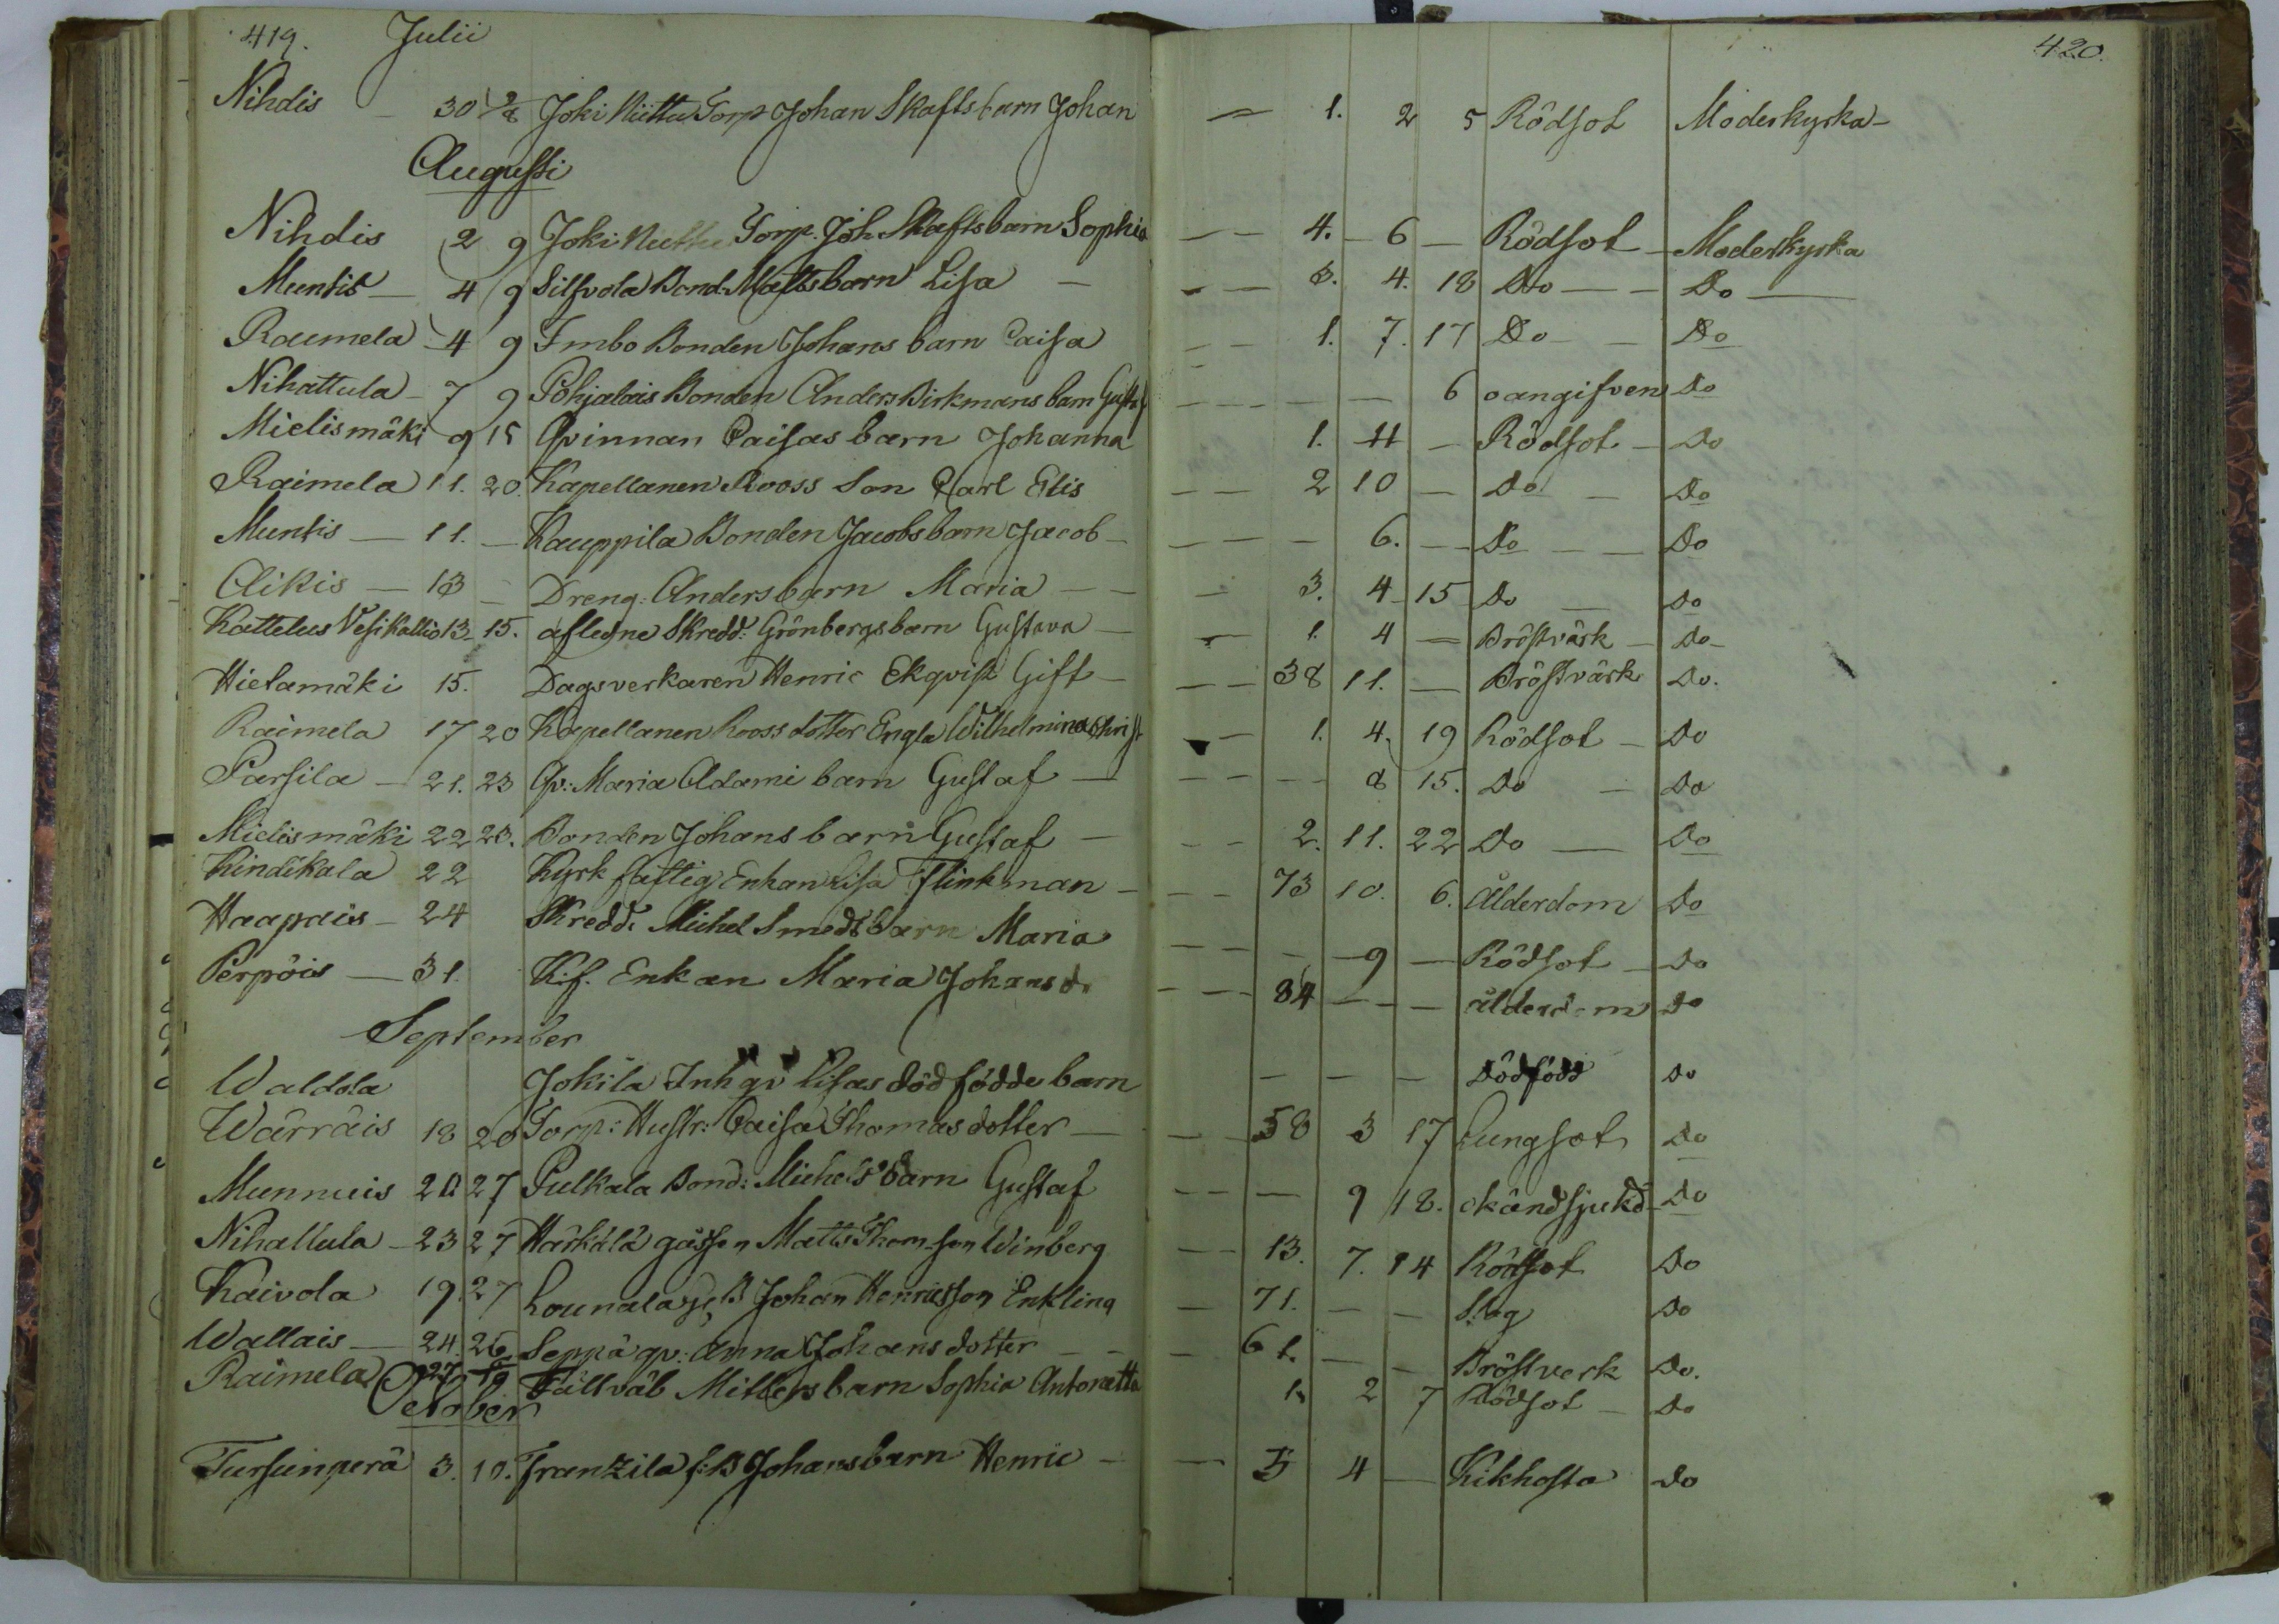 419. Julii 420.
Nihdis - 30 2/8 Joki Niittu Torp Johan Skafts barn Johan - 1. 2 5 Rödsot Moderkyrka -
Augusti
Nihdis 2 9 Joki Niittu Torp. Joh. Skafts barn Sophia - - 4. - 6 - Rödsot - Moderkyrka
Muntis - 4 9 Silfvola Bond. Matts barn Lisa - - - 3. 4. 18 Do - - Do -
Raumela - 4 9 Imbo Bonden Johans barn Caisa - - 1. 7. 17 Do - - Do
Nihattula - 7 9 Pohjalais Bonden Anders Birkmans barn Gust: - - - - 6 oangifven Do
Mielismäki 9 15 Qvinnan Caisas barn Johanna 1. 11 - Rödsot - Do
Raimela 11. 20. Kapellanen Rooss Son Carl Elis - - 2 10 - Do - Do
Muntis - 11. - Kauppila Bonden Jacobs barn Jacob - - - - 6. - Do - - Do
Aikis - 13 - Dreng: Anders barn Maria - - - 3. 4 15 Do - Do
Kattelus Vesikallio 13 - 15. aflegne Skredd: Grönbergs barn Gustava - - 1. 4 - Bröstvärk - Do -
Hietamäki 15. Dagsverkaren Henric Ekqvist Gift - - - 38 11. - Bröstvärk Do.
Raimela 17 20 Kapellanen Rooss dotter Engla Wilhelmina Christ - - 1. 4. 19 Rödsot - Do
Parsila - 21. 23 Qv: Maria Adami barn Gustaf - - - - - 8 15. Do - Do
Mielismäki 22 23. Bonden Johans barn Gustaf - - - 2. 11. 22 Do - Do
Kindikala 22 Kyrk fattig Enkan Lisa Flinkman - - - 73 10. 6. Ålderdom Do
Haapais - 24 Skredd: Michel Smeds barn Maria - - - 9 - Rödsot - Do
Perpöis - 31. K.f. Enkan Maria Johans d. - - - 84 - - - ålderdom Do
September
Waldola Jokila Inh qv Lisas dödfödde barn - - - Dödfödd Do
Wärräis 18 20 Torp: Hustr: Caisa Thomas dotter - - - 58 3 17 Lungsot Do
Munnuis 20 27 Pulkala Bond: Michels barn Gustaf - - - 9 18. okändsjukd - Do
Nihattula - 23 27 Härkälä gossen Matts Thomsson Winberg - - 13. 7. 14 Rödsot Do
Kaivola 19. 27 Lounala Johan Henricsson Enkling - 71. - - Slag Do
Wallais - 24. 26 Seppä qv: Anna Johans dotter - - - 61. - - Bröstverk Do.
Raimela 27 Fältväb Mittlers barn Sophia Antoinetta 1. 2 7 Rödsot - Do
October
Tursunperä 3. 10. Franzila f: B Johans barn Henric - - 5 4 - Kikhosta Do